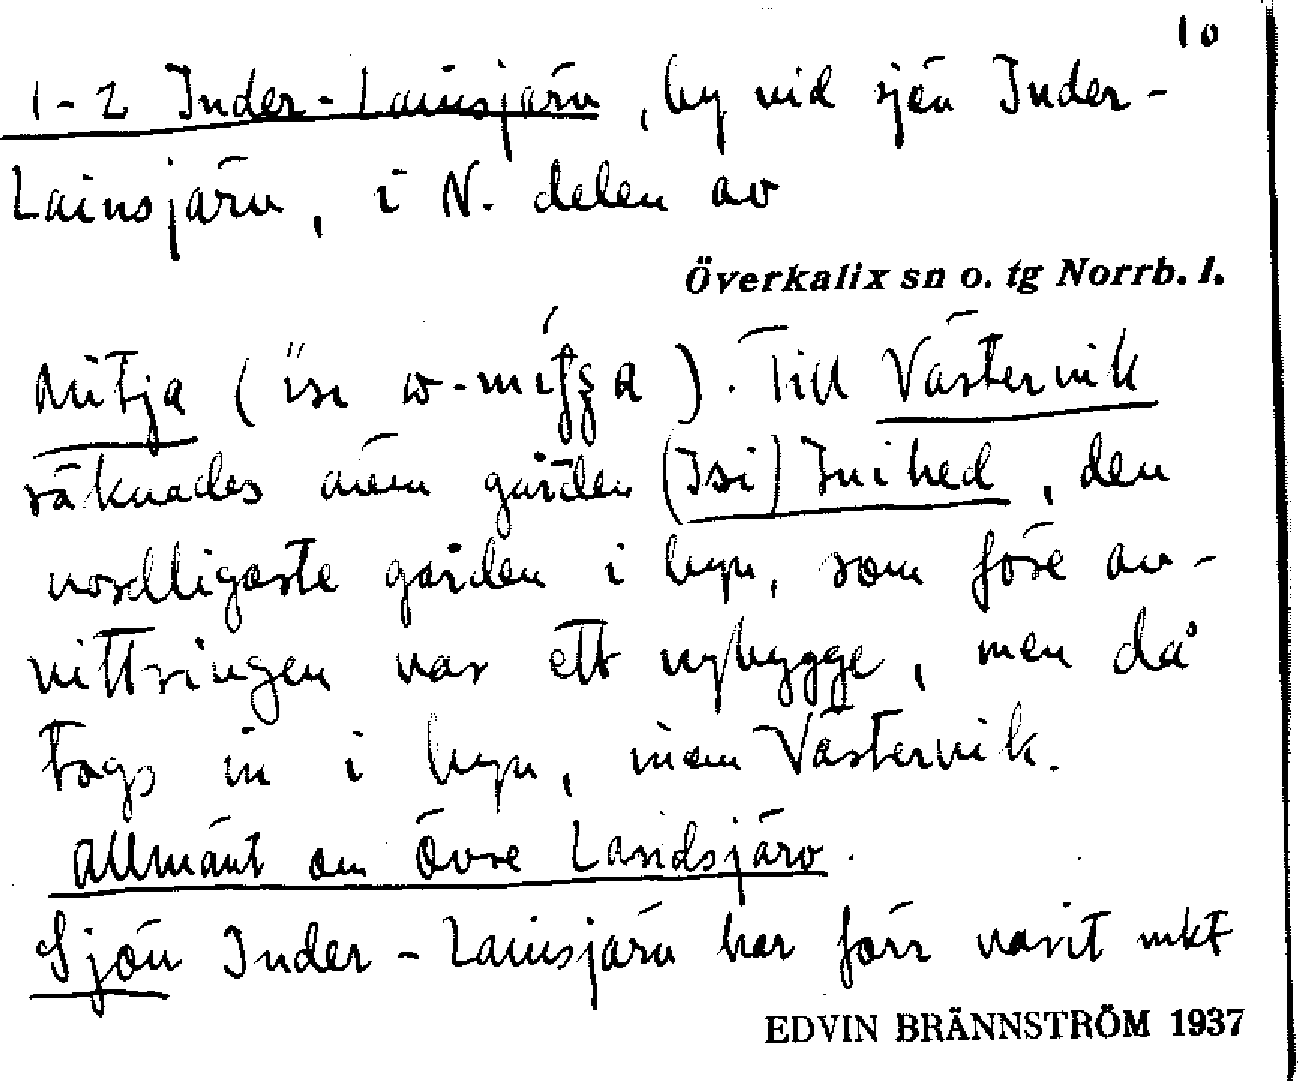 10
1-2 Inder-Lainsjärv, by vid sjön Inder-
Lainsjärv, i N. delen av
Överkalix sn o. tg Norrb. l.
Mitja ( ). Till Västervik
räknades även gården (Isi) Inihed, den
nordligaste gården i byn, som före av-
vittringen var ett nybygge, men då
togs in i byn, inom Västervik.
Allmänt om Övre Landsjärv.
Sjön Inder-Lainsjärv har förr varit mkt
EDVIN BRÄNNSTRÖM 1937